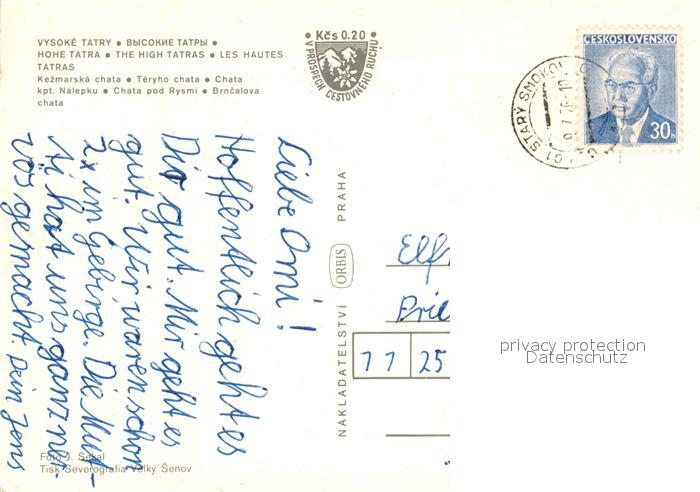 VYSOKÉ TATRY • ВЫСОКИЕ ТАТРЫ •
HOHE TATRA • THE HIGH TATRAS • LES HAUTES
TATRAS
Kežmarská chata • Téryho chata • Chata
kpt. Nálepku • Chata pod Rysmi • Brnčalova
chata
• Kčs 0.20 •
V PROSPECH CESTOVNÉHO RUCHU
ČESKOSLOVENSKO
30h
STARÝ SMOKOVEC
Liebe Omi!
Hoffentlich geht es
Dir gut. Mir geht es
gut. Wir waren schon
2x im Gebirge. Die Mut-
ti hat uns ganz ner-
vös gemacht. Dein Jens
NAKLADATELSTVÍ ORBIS PRAHA
Elf
11 25
privacy protection
Datenschutz
Foto J. Sekal
Tisk Severografia Velký Šenov